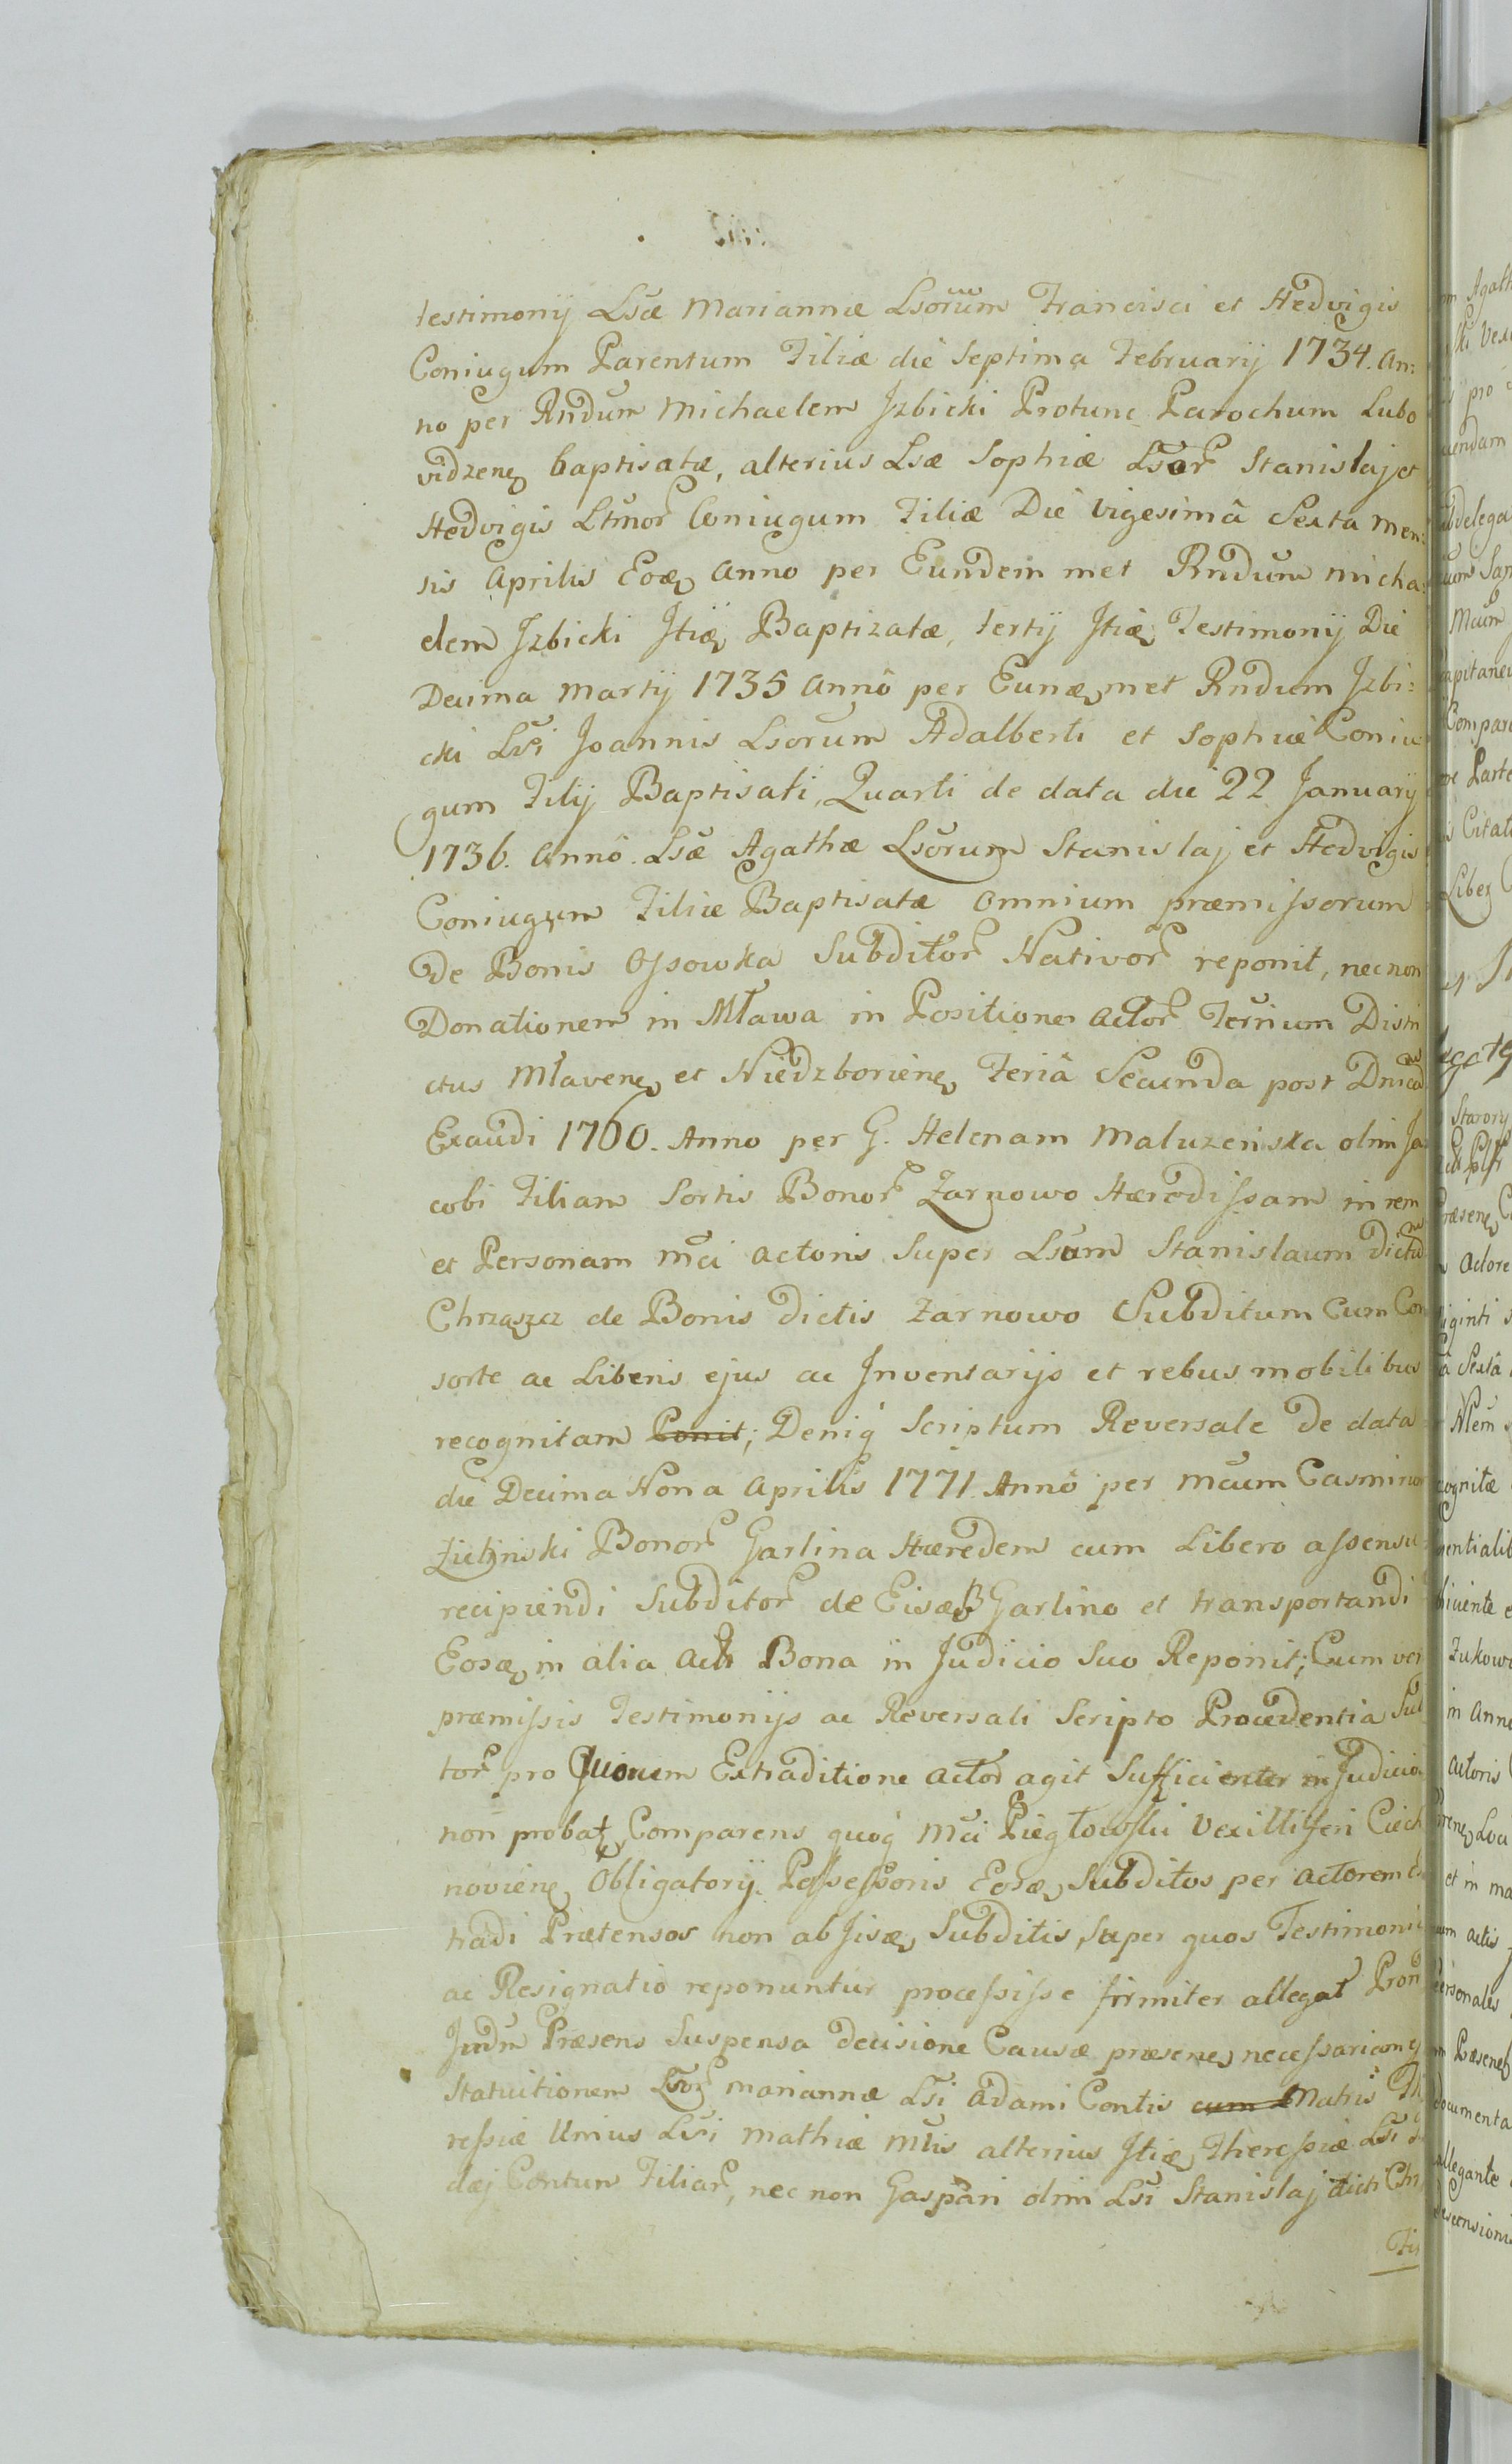 testimonij Lsæ Mariannæ Lsorum Francisci et Hedvigis
Coniugum Parentum Filiæ die Septima Februarij 1734. An:
no per Rndum Michaelem Jzbicki Protunc Parochum Lubo
vidzenę baptisatæ, alterius Lsæ Sophiæ Lsor Stanislaj et
Hedvigis Ltmor Coniugum Filiæ Die Vigesimâ Sexta Men:
sis Aprilis Eoæ Anno per Eundem met Rndum Micha:
elem Jzbicki Jtiæ Baptizatæ, tertij Jtiæ Testimonij Die
Decima Martij 1735 Annô per Eunæ met Rndum Jzbi:
cki Lsi Joannis Lsorum Adalberti et Sophiæ Coniu
gum Filij Baptisati, Quarti de data die 22 Januarij
1736. Annô. Lsæ Agathæ Lsorum Stanislaj et Hedvigis
Coniugum Filiæ Baptisatæ Omnium præmissorum
De Bonis Ossowka Subditor Nativor reponit, necnon
Donationem in Mława in Positione Actor Ternum Distri
ctus Młavenę et Niedzborienę Feriâ Secunda post Dnicã
Exaudi 1760. Anno per G. Helenam Maluzeńska olim Ja
cobi Filiam Sortis Bonor Żarnowo Hæredissam in rem
et Personam Mci Actoris Super Lsum Stanislaum dictũ
Chrząszcz de Bonis dictis Żarnowo Subditum Cum Con
sorte ac Liberis ejus ac Jnventarijs et rebus mobilibus
recognitam Ponit; Deniq Scriptum Reversale de data
die Decima Nona Aprilis 1771 Annô per Mcum Casmirum
Zieliński Bonor Garlina Hæredem cum Libero assensu
recipiendi Subditor de Eisæ B Garlino et transportandi
Eosæ in alia Actr Bona in Judicio Suo Reponit; Cum ver
præmissis Testimonijs ac Reversali Scripto Procedentia Sub
tor pro Quorum Extraditione Actor agit Sufficienter in Judicio
non probat, Comparens quoq Mci Piegłowski Vexilliferi Ciech
novienę Obligatorij Possessoris Eosæ Subditos per Actorem Ex
tradi Prætensos non ab Jisæ Subditis, Super quos Testimonia
ac Resignatio reponuntur processisse firmiter allegat Pron
Judm Præsens Suspensa decisione Causæ præsenę necessariam
Statuitionem Lsor Mariannæ Lsi Adami Contis cum Matris The
ressiæ Unius Lsi Mathiæ Mtis alterius Jtiæ Theressiæ Lsi
dæj Contum Filiar, nec non Gaspari olim Lsi Stanislaj dicti Chr
Fi

m Agath
pro
uendam
bdelega
Mcum
apitaneu
Compare
Parte
Citat
Liber
Præsenę
Actore
iginti
â Sextâ
cognitæ
entialib
Żukowo
in Anno
Actoris
et in ma
um actis
Personales
Præsenę
documenta
allegante